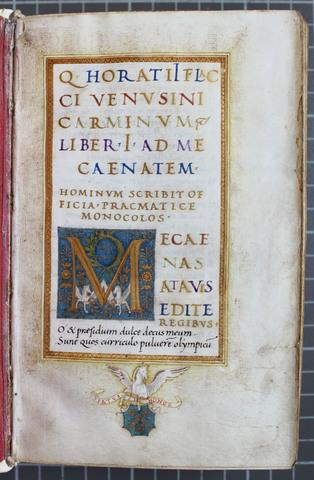 Q· HORATII FLAC
CI VENVSINI
CARMINVM
LIBER·I·AD ME
CAENATEM·
HOMINVM SCRIBIT OF
FICIA·PRACMATICE
MONOCOLOS·
MECAE
NAS
ATAVIS
EDITE
REGIBVS·
O & præsidium dulce decus meum
Sunt quos curriculo pulverē olympicū